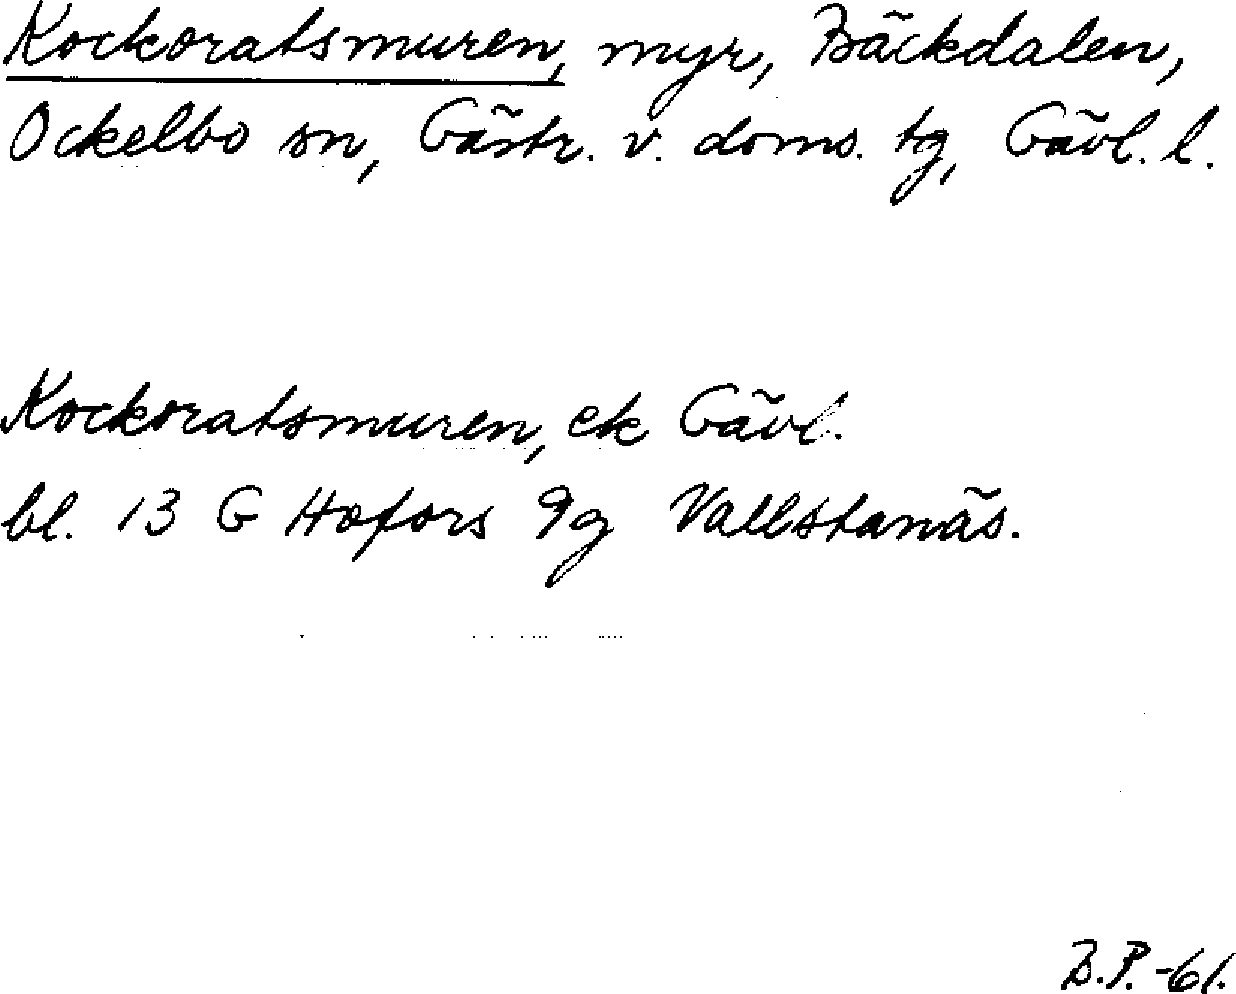 Kockoratsmuren, myr, Bäckdalen,
Ockelbo sn, Gästr. v. doms. tg, Gävl. l.
Kockoratsmuren, ek Gävl.
bl. 13 G Hofors 9g Vallstanäs.
B.P. -61.